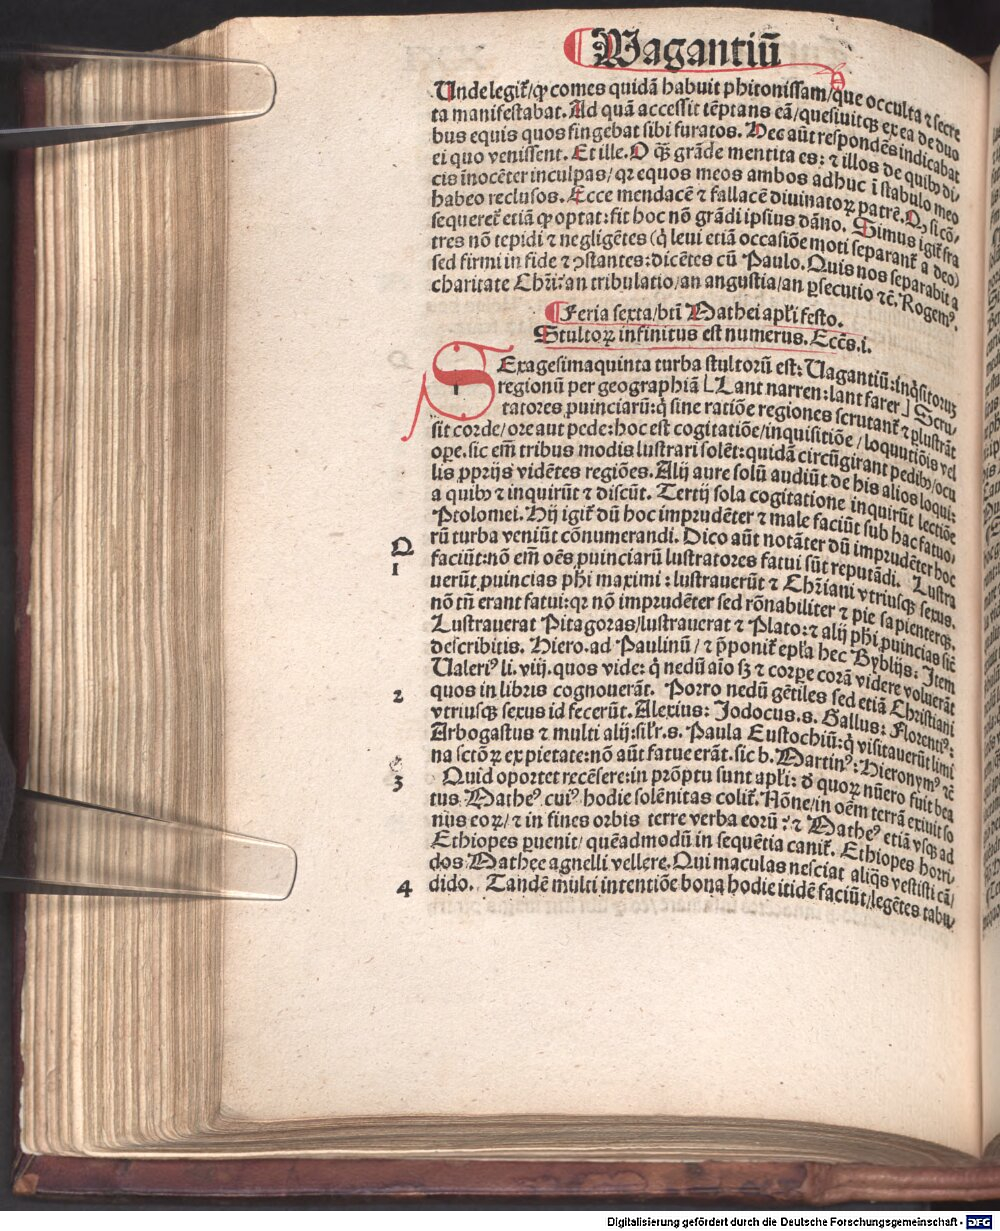 ¶ Vagantiū
Unde legit᷑/ ꝙ comes quidā habuit phitonissam/ que occulta ⁊ secre
ta manifestabat. Ad quā accessit tēptans eā/ quesiuitqꝫ ex ea de duo
bus equis quos fingebat sibi furatos. Hec aūt respondēs indicabat
ei quo venissent. Et ille. O qꝫ grāde mentita es: ⁊ illos de quibꝰ di-
cis īnocēter inculpas/ qꝛ equos meos ambos adhuc ī stabulo meo
habeo reclusos. Ecce mendacē ⁊ fallacē diuinatoꝝ patrē. Qꝫ si cō-
sequeret᷑ etiā ꝙ optat: fit hoc nō grādi ipsius dāno. Simus igit᷑ fra
tres nō tepidi ⁊ negligētes (q̇ leui etiā occasiōe moti separant᷑ a deo)
sed firmi in fide ⁊ ꝯstantes: dicētes cū Paulo. Quis nos separabit a
charitate Chꝛi: an tribulatio/ an angustia/ an ꝑsecutio ⁊c̄. Rogemꝰ.
¶ Feria sexta/ bt̄i Mathei apl̄i festo.
Stultoꝝ infinitus est numerus. Ecc̄s. i.
SExagesimaquinta turba stultorū est: Uagantiū: inq̇sitorūqꝫ
regionū per geographiā [Lant narren: lant farer] Scru-
tatores ꝓuinciarū: q̇ sine ratiōe regiones scrutant᷑ ⁊ plustrāt
sit corde/ ore aut pede: hoc est cogitatiōe/ inquisitiōe/ loquutiōis vel
oꝑe. sic em̄ tribus modis lustrari solēt: quidā circūgirant pedibꝰ/ ocu
lis ꝓprijs vidētes regiōes. Alij aure solū audiūt de his alios loqui:
a quibꝰ ⁊ inquirūt ⁊ discūt. Tertij sola cogitatione inquirūt lectiōe
Ptolomei. Hij igit᷑ dū hoc imprudēter ⁊ male faciūt sub hac fatuo-
rū turba veniūt cōnumerandi. Dico aūt notāter dū imprudēter hoc
faciūt: nō em̄ oēs ꝓuinciarū lustratores fatui sūt reputādi. Lustra
uerūt ꝓuincias ph̄i maximi: lustrauerūt ⁊ Chꝛiani vtriusqꝫ sexus.
nō tn̄ erant fatui: qꝛ nō imprudēter sed rōnabiliter ⁊ pie sapienterqꝫ.
Lustrauerat Pitagoras/ lustrauerat ⁊ Plato: ⁊ alij ph̄i ꝓuincias sic̄
describitis. Hiero. ad Paulinū/ ⁊ p̄ponit᷑ epl̄a hec Byblijs: Item
Ualeriꝰ li. viij. quos vide: q̇ nedū aīo sꝫ ⁊ corꝑe corā videre voluerāt
quos in libris cognouerāt. Porro nedū gētiles sed etiā Christiani
vtriusqꝫ sexus id fecerūt. Alexius: Jodocus. s. Gallus: Florentiꝰ:
Arbogastus ⁊ multi alij: sil̄r. s. Paula Eustochiū: q̇ visitauerūt limi
na sctōꝝ ex pietate: nō aūt fatue erāt. sic b. Martinꝰ: Hieronymꝰ ⁊c̄
Quid oportet recēsere: in prōptu sunt apl̄i: d̄ quoꝝ nūero fuit bea
tus Matheꝰ cuiꝰ hodie solēnitas colit᷑. Nōne/ in oēm terrā exiuit so
nus eoꝝ/ ⁊ in fines orbis terre verba eorū: ⁊ Matheꝰ etiā vsqꝫ ad
Ethiopes ꝓuenit/ quēadmodū in sequētia canit᷑. Ethiopes horri-
dos Mathee agnelli vellere. Qui maculas nesciat aliq̄s vestisti cā/
dido. Tandē multi intentiōe bona hodie itidē faciūt/ legētes tabu-
Q
1
2
3
4
Digitalisierung gefördert durch die Deutsche Forschungsgemeinschaft - DFG